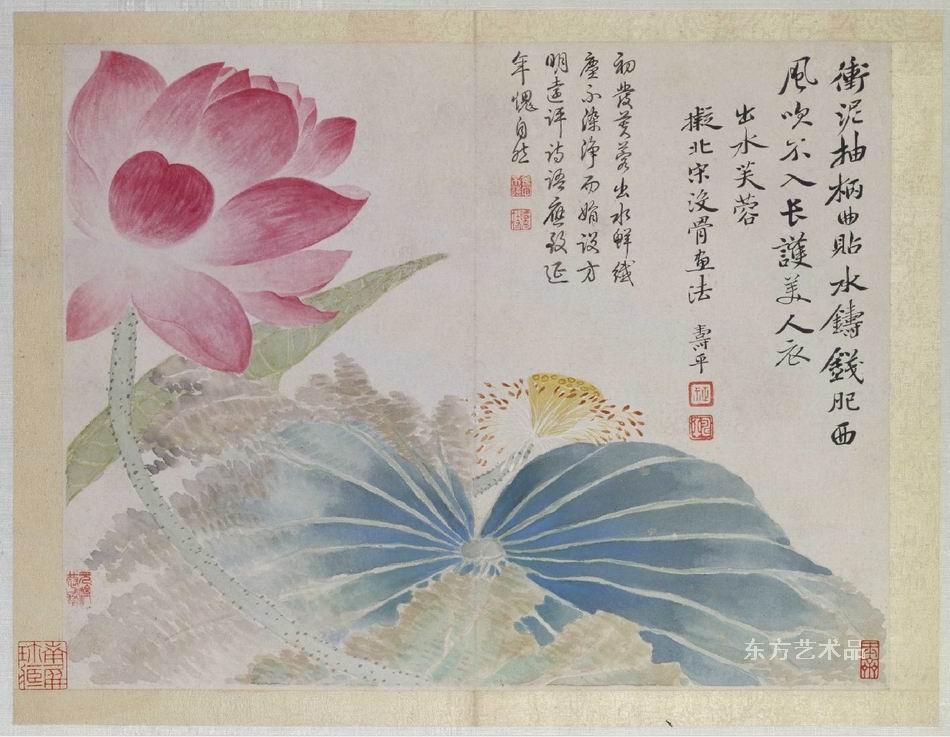 衝泥抽柄曲貼水鑄錢肥西
風吹不入長護美人衣
出水芙蓉
擬北宋没骨畫法 壽平
初發芙蓉出水鮮纖
塵不染淨而娟設方
明遠評詩語應致延
年愧自然
东方艺术品